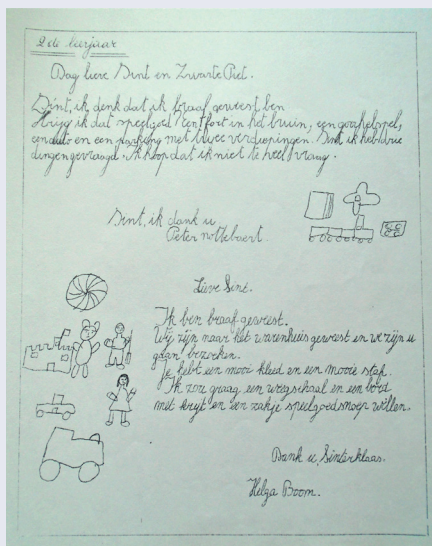 2de leerjaar
Dag lieve Sint en Zwarte Piet.
Sint, ik denk dat ik braaf geweest ben
Krijg ik dat speelgoed: een fort in het bruin, een goochelspel,
een auto en een parking met twee verdiepingen. Sint ik heb drie
dingen gevraagd. Ik hoop dat ik niet te veel vraag.
Sint, ik dank u
Peter nottebaert.
Lieve Sint.
Ik ben braaf geweest.
Wij zijn naar het warenhuis geweest en we zijn u
gaan bezoeken.
Je hebt een mooi kleed en een mooie staf.
Ik zou graag een weegschaal en een bord
met krijt en een zakje speelgoedsnoep willen.
Dank u, Sinterklaas.
Helga Boom.